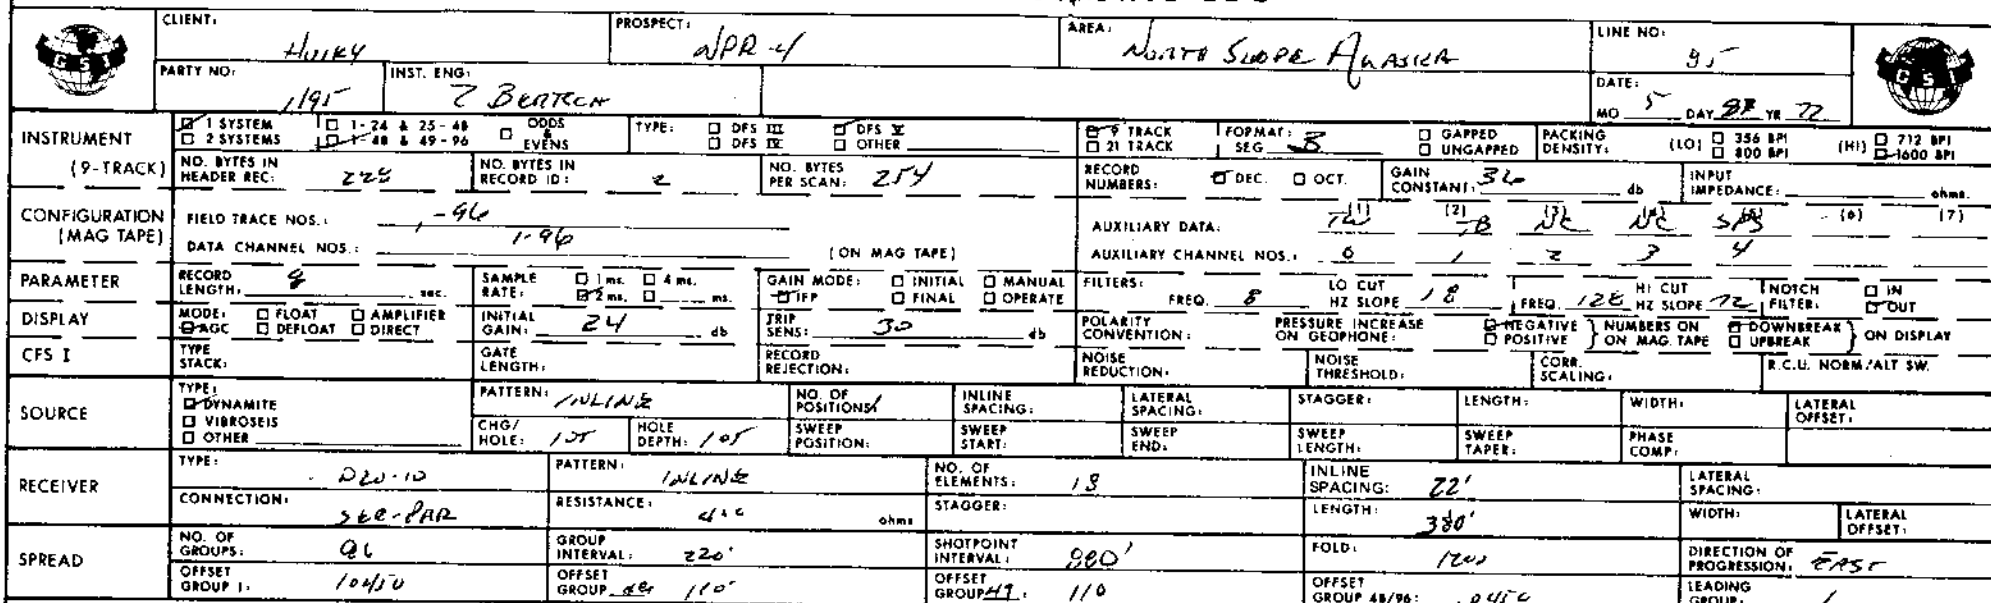 CLIENT: Husky PROSPECT: NPR-4 AREA: North Slope Alaska LINE NO: 95
GSI GSI
PARTY NO: 1195 INST. ENG: Z Bertech DATE: MO 5 DAY YR 77
INSTRUMENT (9-TRACK) 1 SYSTEM 2 SYSTEMS 1-24 & 25-48 1-48 & 49-96 ODDS & EVENS TYPE: DFS III DFS IV DFS V OTHER 9 TRACK 21 TRACK FORMAT: SEG B GAPPED UNGAPPED PACKING DENSITY: (LO) 356 BPI 800 BPI (HI) 712 BPI 1600 BPI
NO. BYTES IN HEADER REC: 228 NO. BYTES IN RECORD ID: 2 NO. BYTES PER SCAN: 254 RECORD NUMBERS: DEC. OCT. GAIN CONSTANT: 36 db INPUT IMPEDANCE: ohms.
CONFIGURATION (MAG TAPE) FIELD TRACE NOS.: 1-96 AUXILIARY DATA: (1) TB (2) (3) NC (4) NC (5) (6) (7)
DATA CHANNEL NOS.: 1-96 (ON MAG TAPE) AUXILIARY CHANNEL NOS.: 0 1 2 3 4
PARAMETER RECORD LENGTH: sec. SAMPLE RATE: 1 ms. 4 ms. 2 ms. ms. GAIN MODE: INITIAL MANUAL IFP FINAL OPERATE FILTERS: FREQ. 8 LO CUT HZ SLOPE 18 FREQ. 128 HI CUT HZ SLOPE 72 NOTCH FILTER: IN OUT
DISPLAY MODE: FLOAT AMPLIFIER AGC DEFLOAT DIRECT INITIAL GAIN: 24 db TRIP SENS: 30 db POLARITY CONVENTION: PRESSURE INCREASE ON GEOPHONE: NEGATIVE POSITIVE NUMBERS ON ON MAG. TAPE DOWNBREAK UPBREAK ON DISPLAY
CFS I TYPE STACK: GATE LENGTH: RECORD REJECTION: NOISE REDUCTION: NOISE THRESHOLD: CORR. SCALING: R.C.U. NORM/ALT SW.
SOURCE TYPE: DYNAMITE VIBROSEIS OTHER PATTERN: INLINE NO. OF POSITIONS: 1 INLINE SPACING: LATERAL SPACING: STAGGER: LENGTH: WIDTH: LATERAL OFFSET:
CHG/HOLE: HOLE DEPTH: 105 SWEEP POSITION: SWEEP START: SWEEP END: SWEEP LENGTH: SWEEP TAPER: PHASE COMP:
RECEIVER TYPE: D20-10 PATTERN: INLINE NO. OF ELEMENTS: 18 INLINE SPACING: 22' LATERAL SPACING:
CONNECTION: SER-PAR RESISTANCE: ohms STAGGER: LENGTH: 380' WIDTH: LATERAL OFFSET:
SPREAD NO. OF GROUPS: 96 GROUP INTERVAL: 220' SHOTPOINT INTERVAL: 880' FOLD: 1200 DIRECTION OF PROGRESSION: EAST
OFFSET GROUP 1: 10450 OFFSET GROUP 48: 110' OFFSET GROUP 49: 110 OFFSET GROUP 48/96: LEADING GROUP: 1